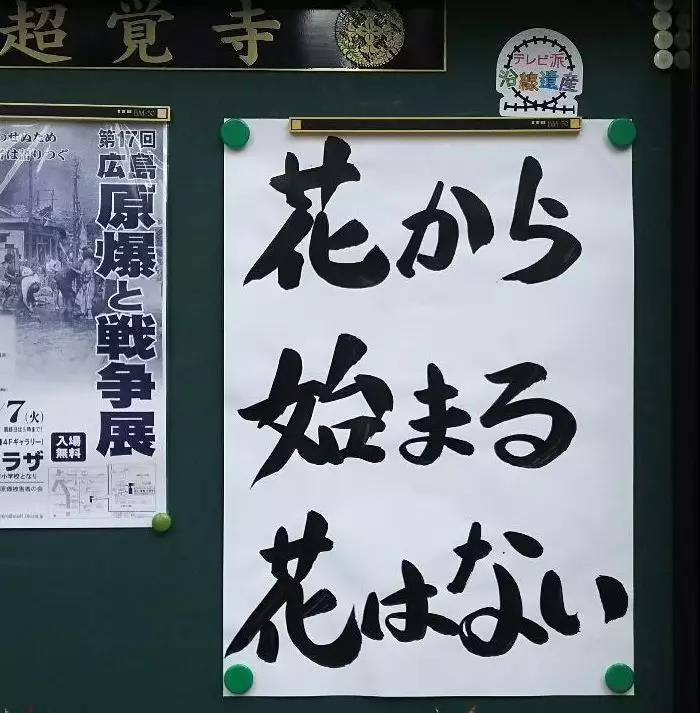 超覚寺
テレビ派
沿線遺産
BM-50
BM-50
花から
始まる
花はない
第17回
広島
原爆と戦争展
わせぬため
7(火)
4Fギャラリー)
ラザ
小学校となり
入場
無料